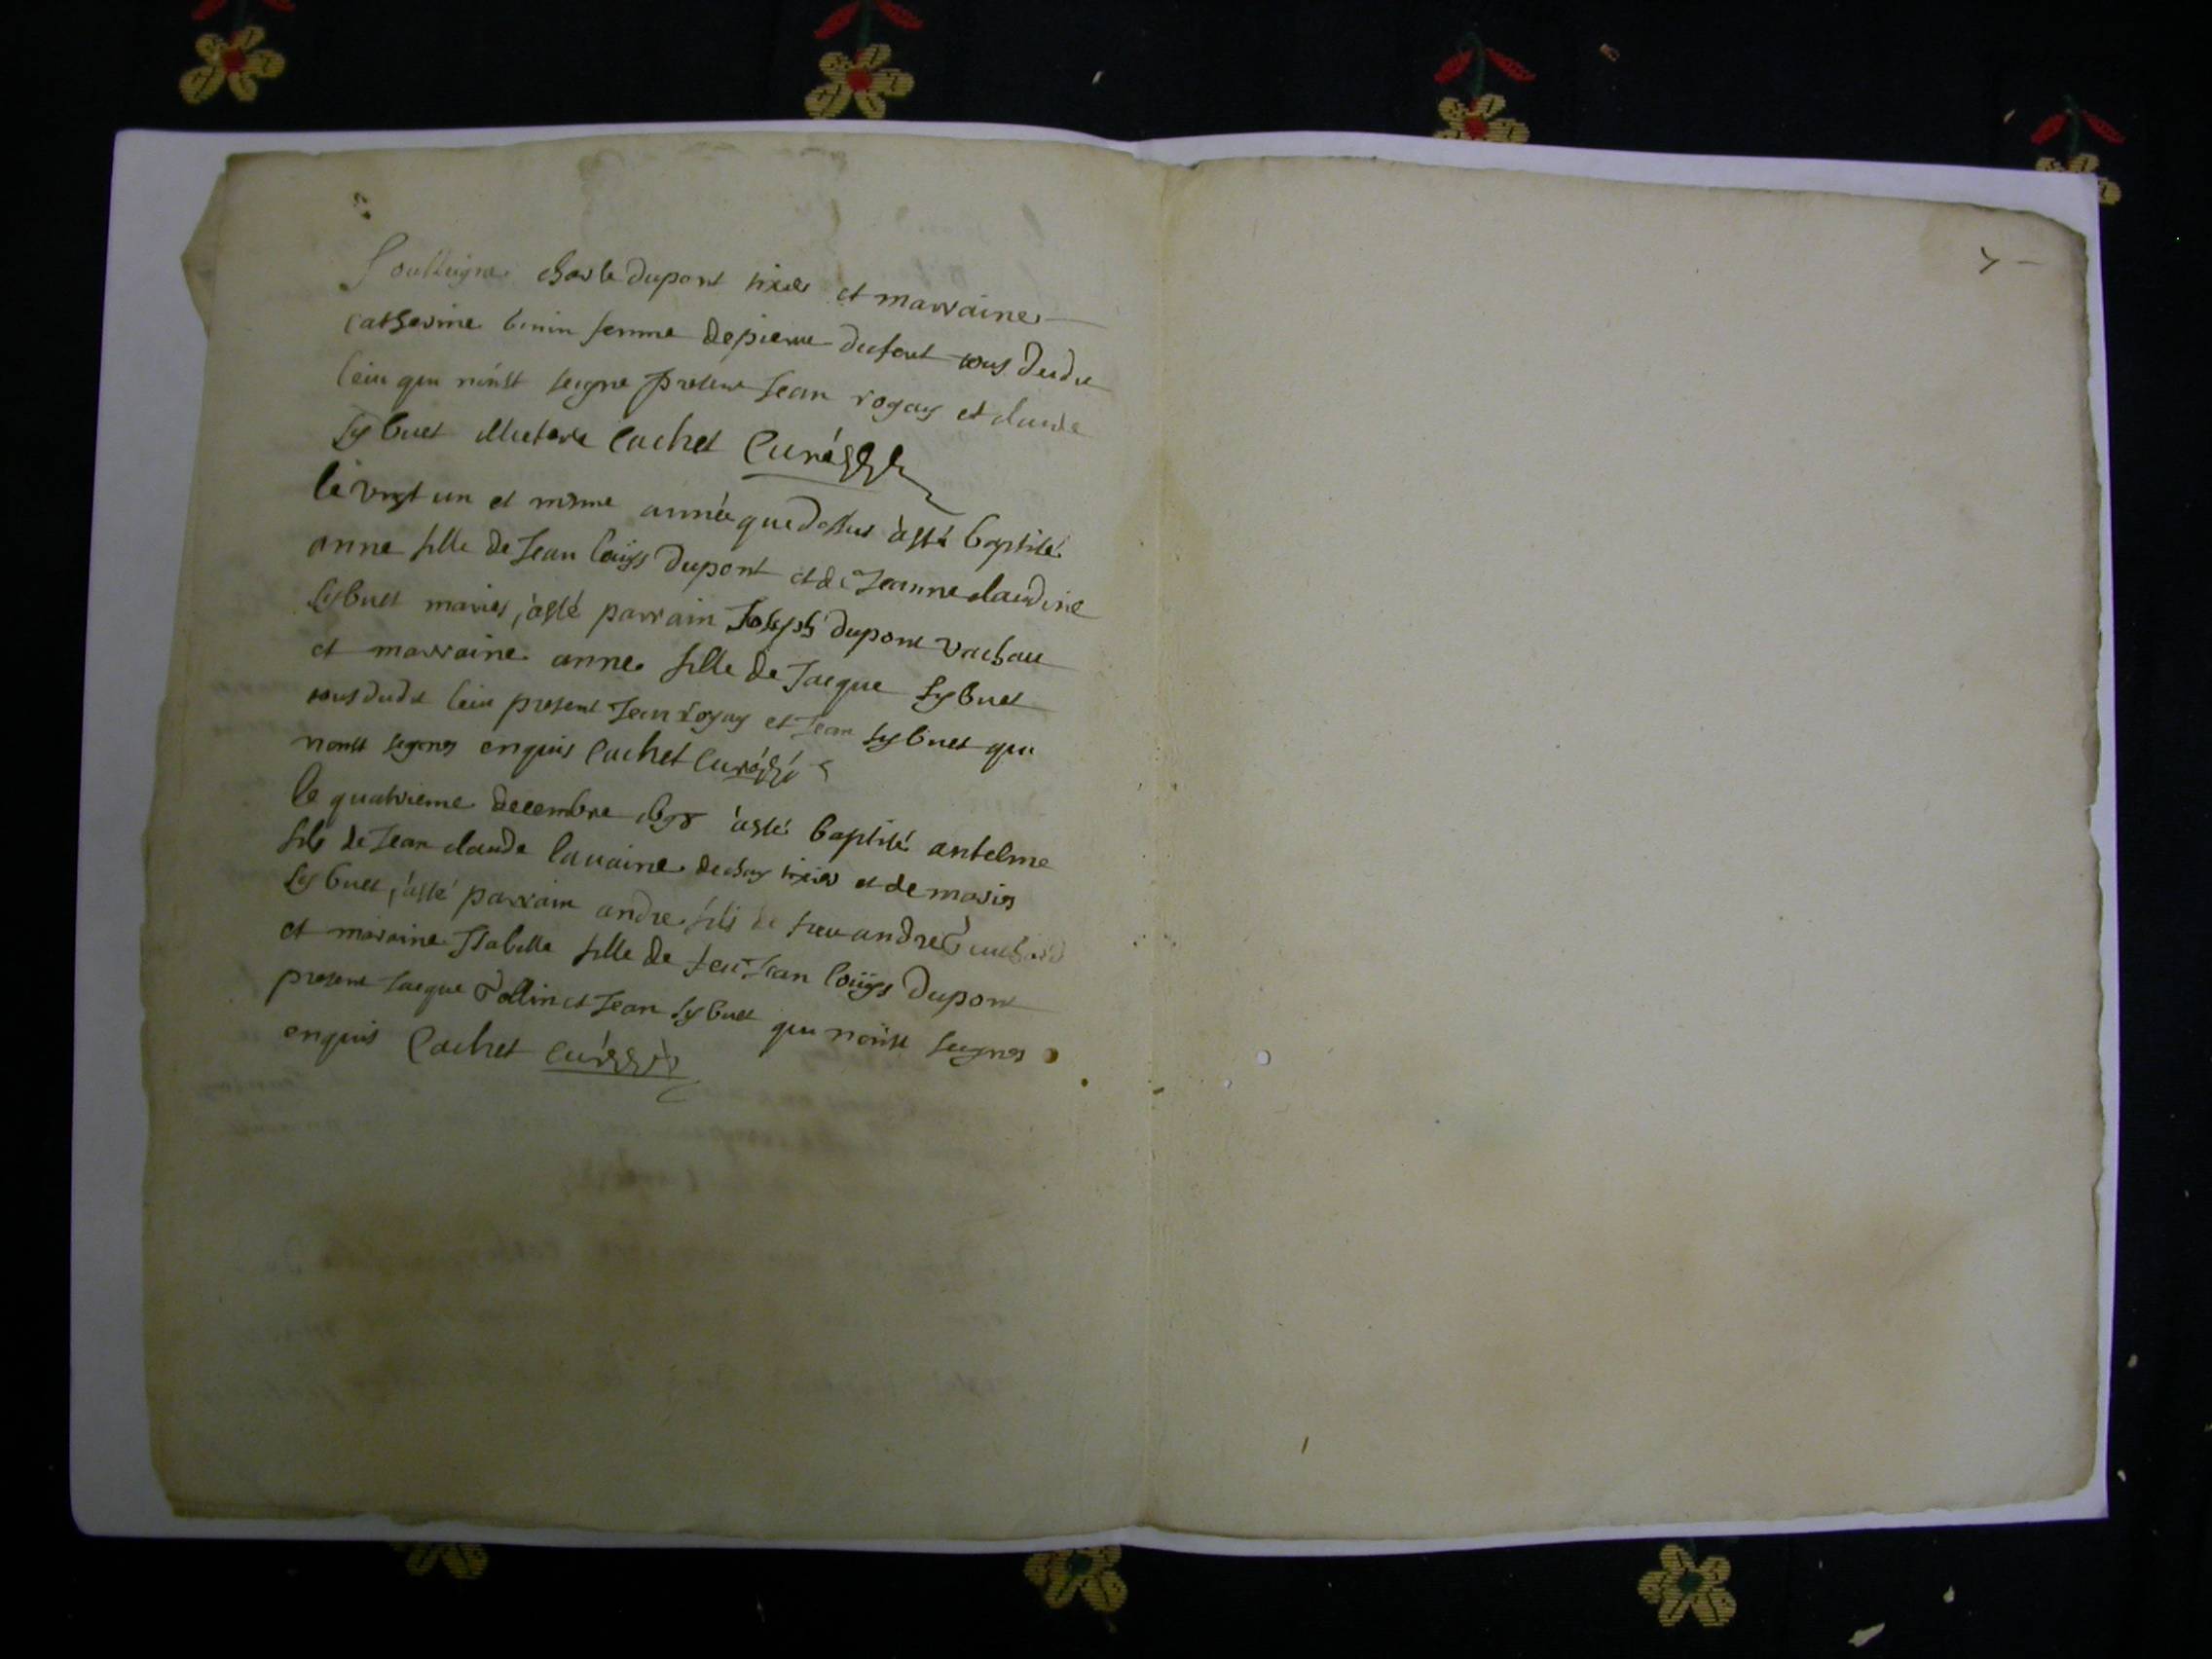 Soubsigne charle dupont tixier et marraine
catherine benin femme de pierre dufour tous dudit
lieu qui nonst seigne present Jean rogay et claude
Sybuet illiteré Cachet Curé
le vingt un et mesme année que dessus a esté baptisé
anne fille de Jean louys dupont et de Jeanne claudine
Sybuet mariés, a esté parrain Joseph dupont vachau
et marraine anne fille de Jacque Sybuet
tous dudit lieu present Jean rogay et Jean Sybuet qui
nonst signes enquis Cachet Curé
le quatrieme decembre a esté baptisé antelme
fils de Jean claude lauaine de chay tixier et de marie
Sybuet, a esté parrain andre fils de feu andre
et maraine Isabelle fille de feu Jean louys dupont
present Jacque et Jean Sybuet qui nonst seignes
enquis Cachet curé
7